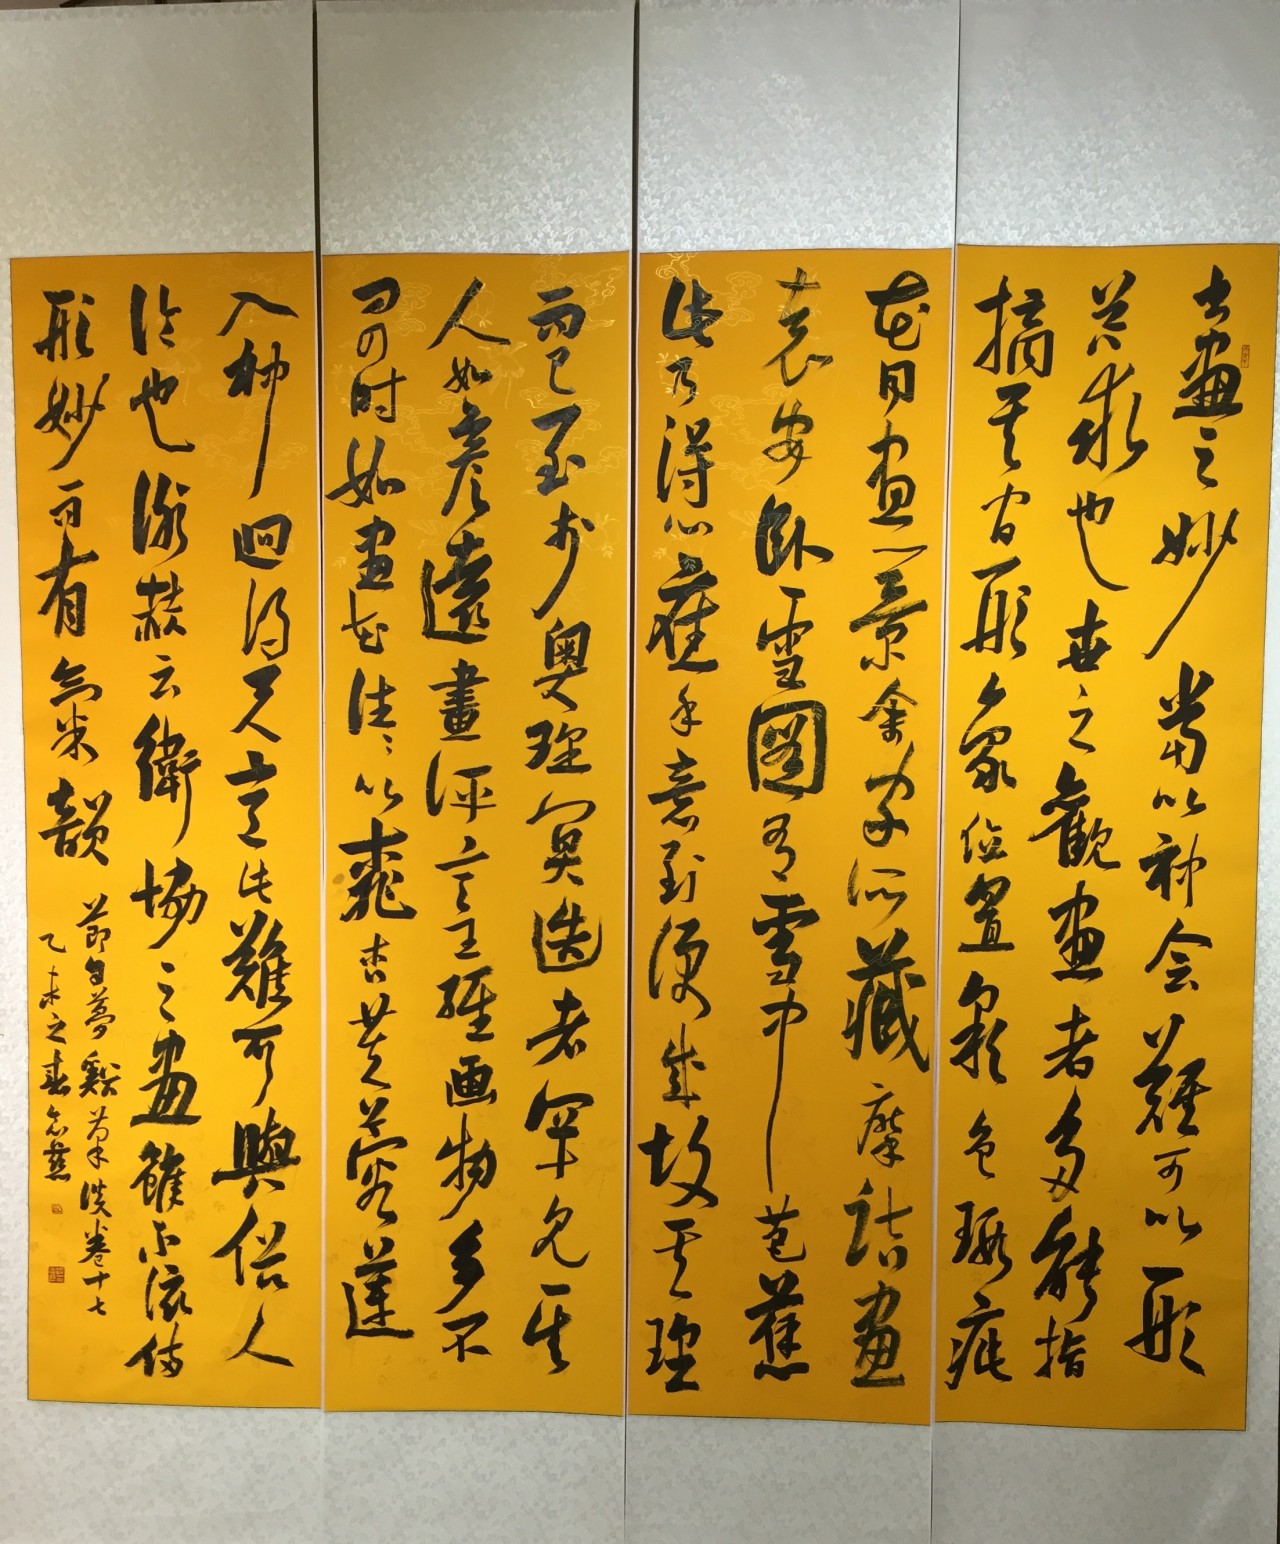 書畫之妙當以神会難可以形
器求也世之觀畫者多能指
摘其间形象位置彩色瑕疵
花同畫一景余家所藏摩詰畫
袁安卧雪圖有雪中芭蕉
此乃得心應手意到便成故其理
而已至於奥理冥造者罕見其
人如彦遠畫評言王維画物多不
问四时如畫花往々以桃杏芙蓉蓮
入神迥得天意此難可與俗人
論也謝赫云衛協之畫雖不該備
形妙而有氣韻
節自夢谿筆談卷十七
乙未之春